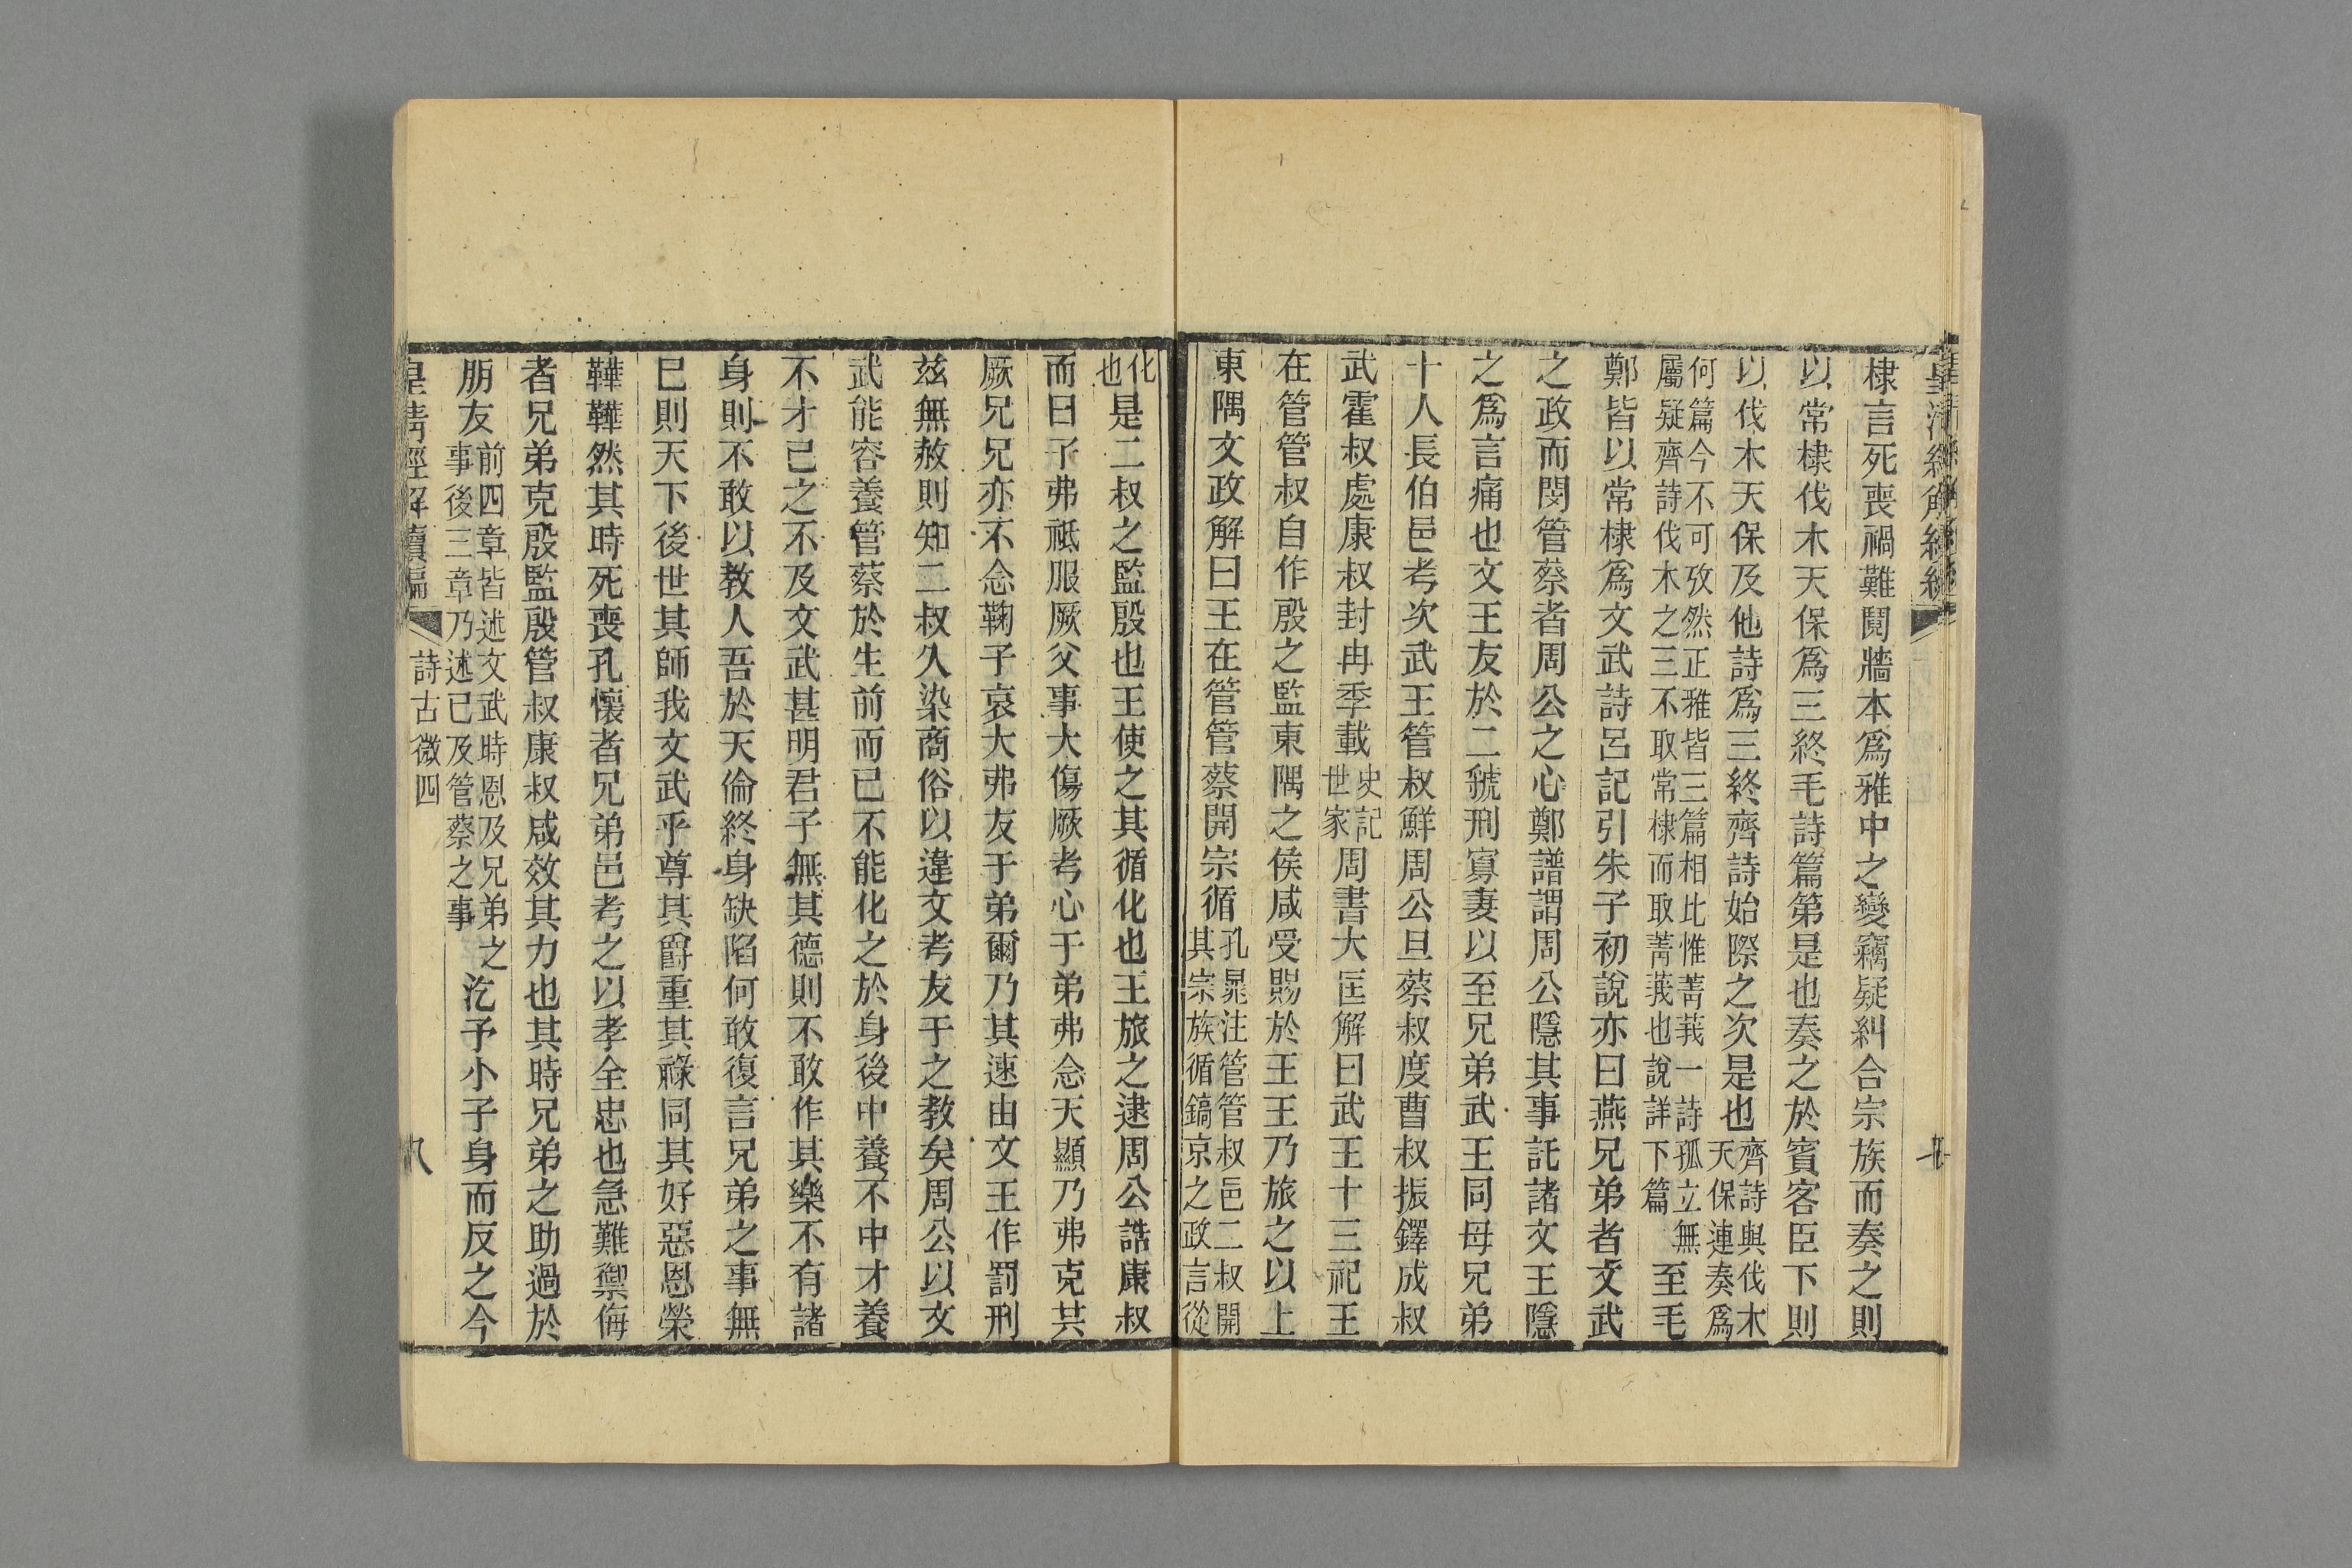 皇清經解續編
棣言死喪禍難鬩牆本爲雅中之變竊疑糾合宗族而奏之則
以常棣伐木天保爲三終毛詩篇第是也奏之於賓客臣下則
以伐木天保及他詩爲三終齊詩始際之次是也齊詩與伐木
天保連奏爲
何篇今不可攷然正雅皆三篇相比惟菁莪一詩孤立無
屬疑齊詩伐木之三不取常棣而取菁莪也說詳下篇
至毛
鄭皆以常棣爲文武詩呂記引朱子初說亦曰燕兄弟者文武
之政而閔管蔡者周公之心鄭譜謂周公隱其事託諸文王隱
之爲言痛也文王友於二虢刑寡妻以至兄弟武王同母兄弟
十人長伯邑考次武王管叔鮮周公旦蔡叔度曹叔振鐸成叔
武霍叔處康叔封冉季載史記
世家周書大匡解曰武王十三祀王
在管管叔自作殷之監東隅之侯咸受賜於王王乃旅之以上
東隅文政解曰王在管管蔡開宗循孔晁注管管叔邑二叔開
其宗族循鎬京之政言從
化
也是二叔之監殷也王使之其循化也王旅之逮周公誥康叔
而曰子弗祗服厥父事大傷厥考心于弟弗念天顯乃弗克其
厥兄兄亦不念鞠子哀大弗友于弟爾乃其速由文王作罰刑
茲無赦則知二叔久染商俗以違文考友于之教矣周公以文
武能容養管蔡於生前而已不能化之於身後中養不中才養
不才已之不及文武甚明君子無其德則不敢作其樂不有諸
身則不敢以教人吾於天倫終身缺陷何敢復言兄弟之事無
巳則天下後世其師我文武乎尊其爵重其祿同其好惡恩榮
鞾鞾然其時死喪孔懷者兄弟邑考之以孝全忠也急難禦侮
者兄弟克殷監殷管叔康叔咸效其力也其時兄弟之助過於
朋友前四章皆述文武時恩及兄弟之
事後三章乃述已及管蔡之事
汔予小子身而反之今
皇清經解續編
詩古微四
八